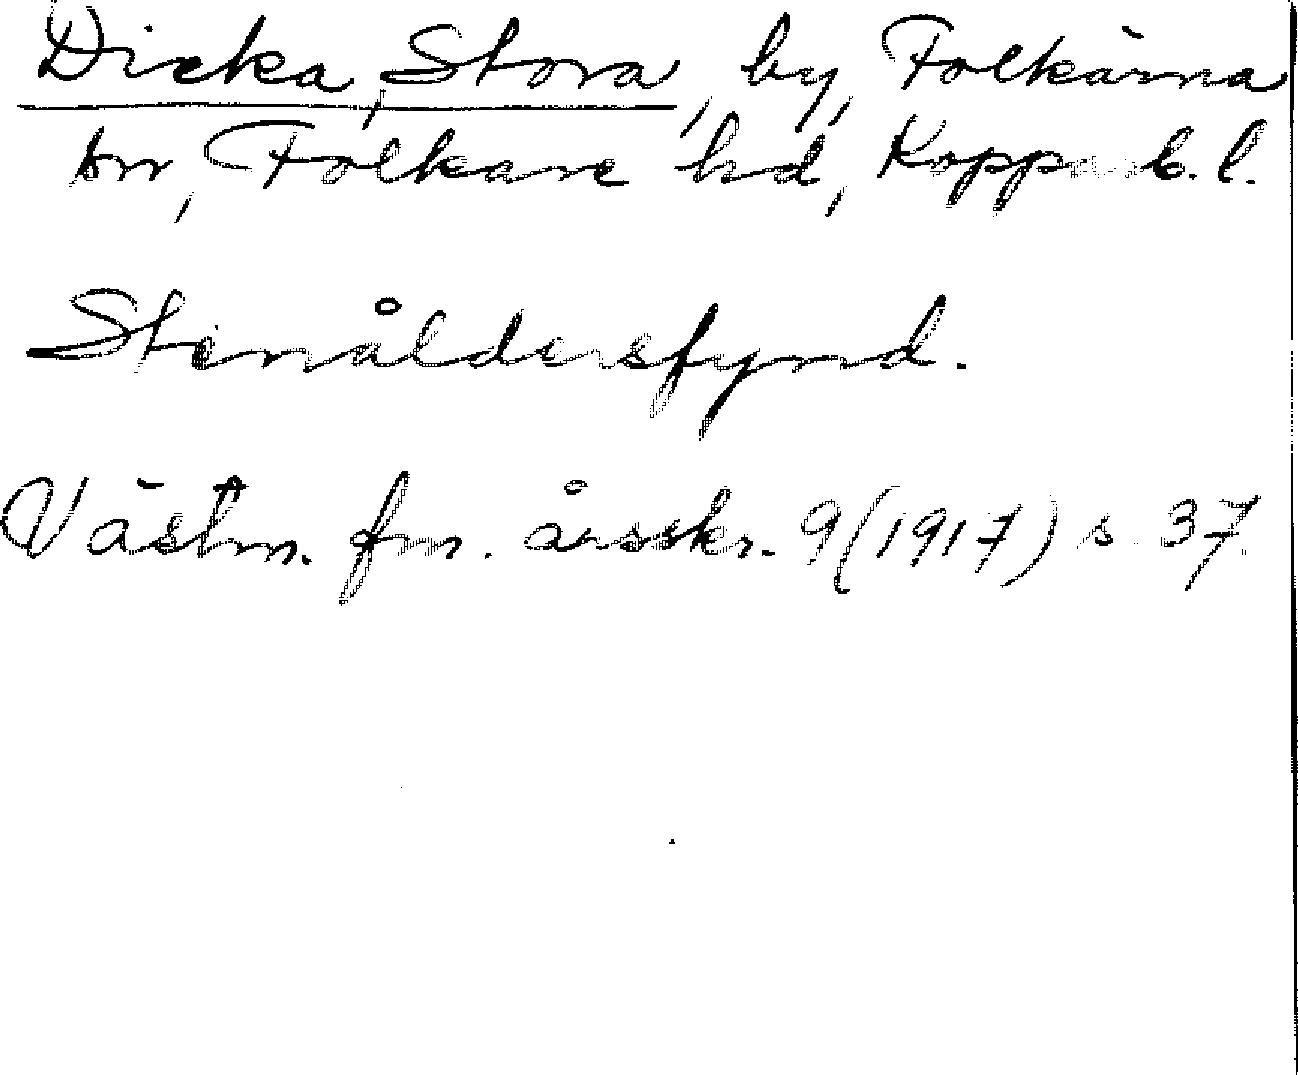 Dicka, Stora, by, Folkärna
sn, Folkare hd, Kopparb. l.
Stenåldersfynd.
Västm. fm. årsskr. 9 (1917) s. 37.